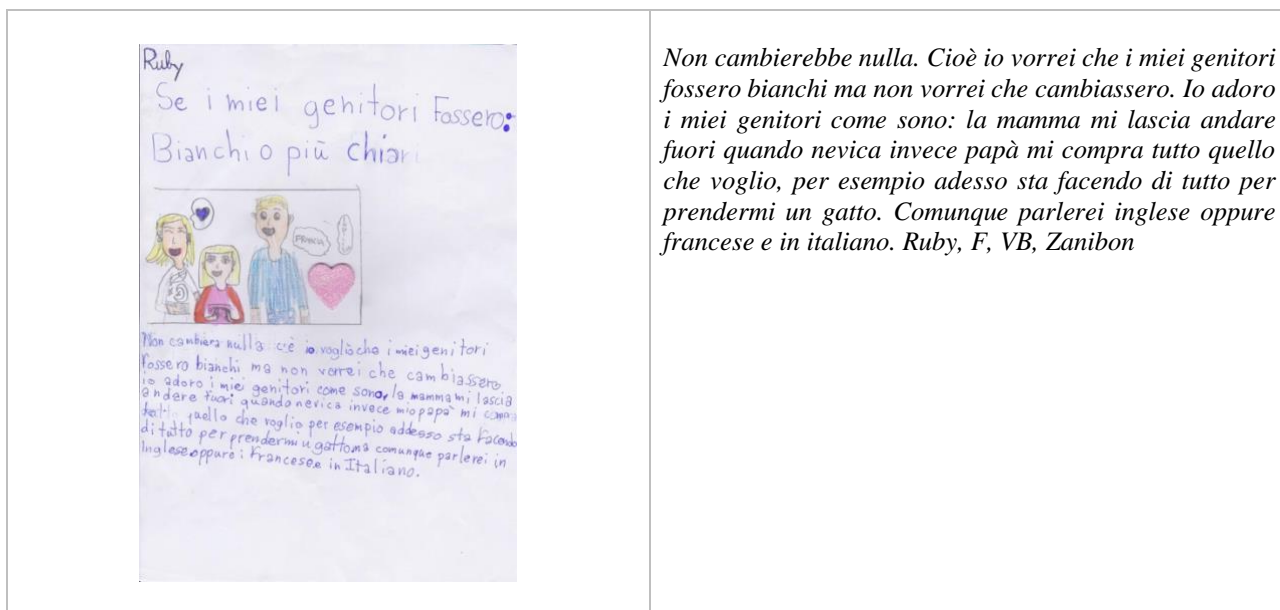 Ruby
Se i miei genitori Fossero:
Bianchi o più chiari
FRANCIA
Non cambiera nulla c'è io voglio che i miei genitori
Fossero bianchi ma non vorrei che cambiassero
io adoro i miei genitori come sono, la mamma mi lascia
andere fuori quando nevica invece mio papà mi compra
quello che voglio per esempio addesso sta Facendo
di tutto per prendermi u gatto ma comunque parlerei in
Inglese oppure i Francese e in Italiano.
Non cambierebbe nulla. Cioè io vorrei che i miei genitori
fossero bianchi ma non vorrei che cambiassero. Io adoro
i miei genitori come sono: la mamma mi lascia andare
fuori quando nevica invece papà mi compra tutto quello
che voglio, per esempio adesso sta facendo di tutto per
prendermi un gatto. Comunque parlerei inglese oppure
francese e in italiano. Ruby, F, VB, Zanibon